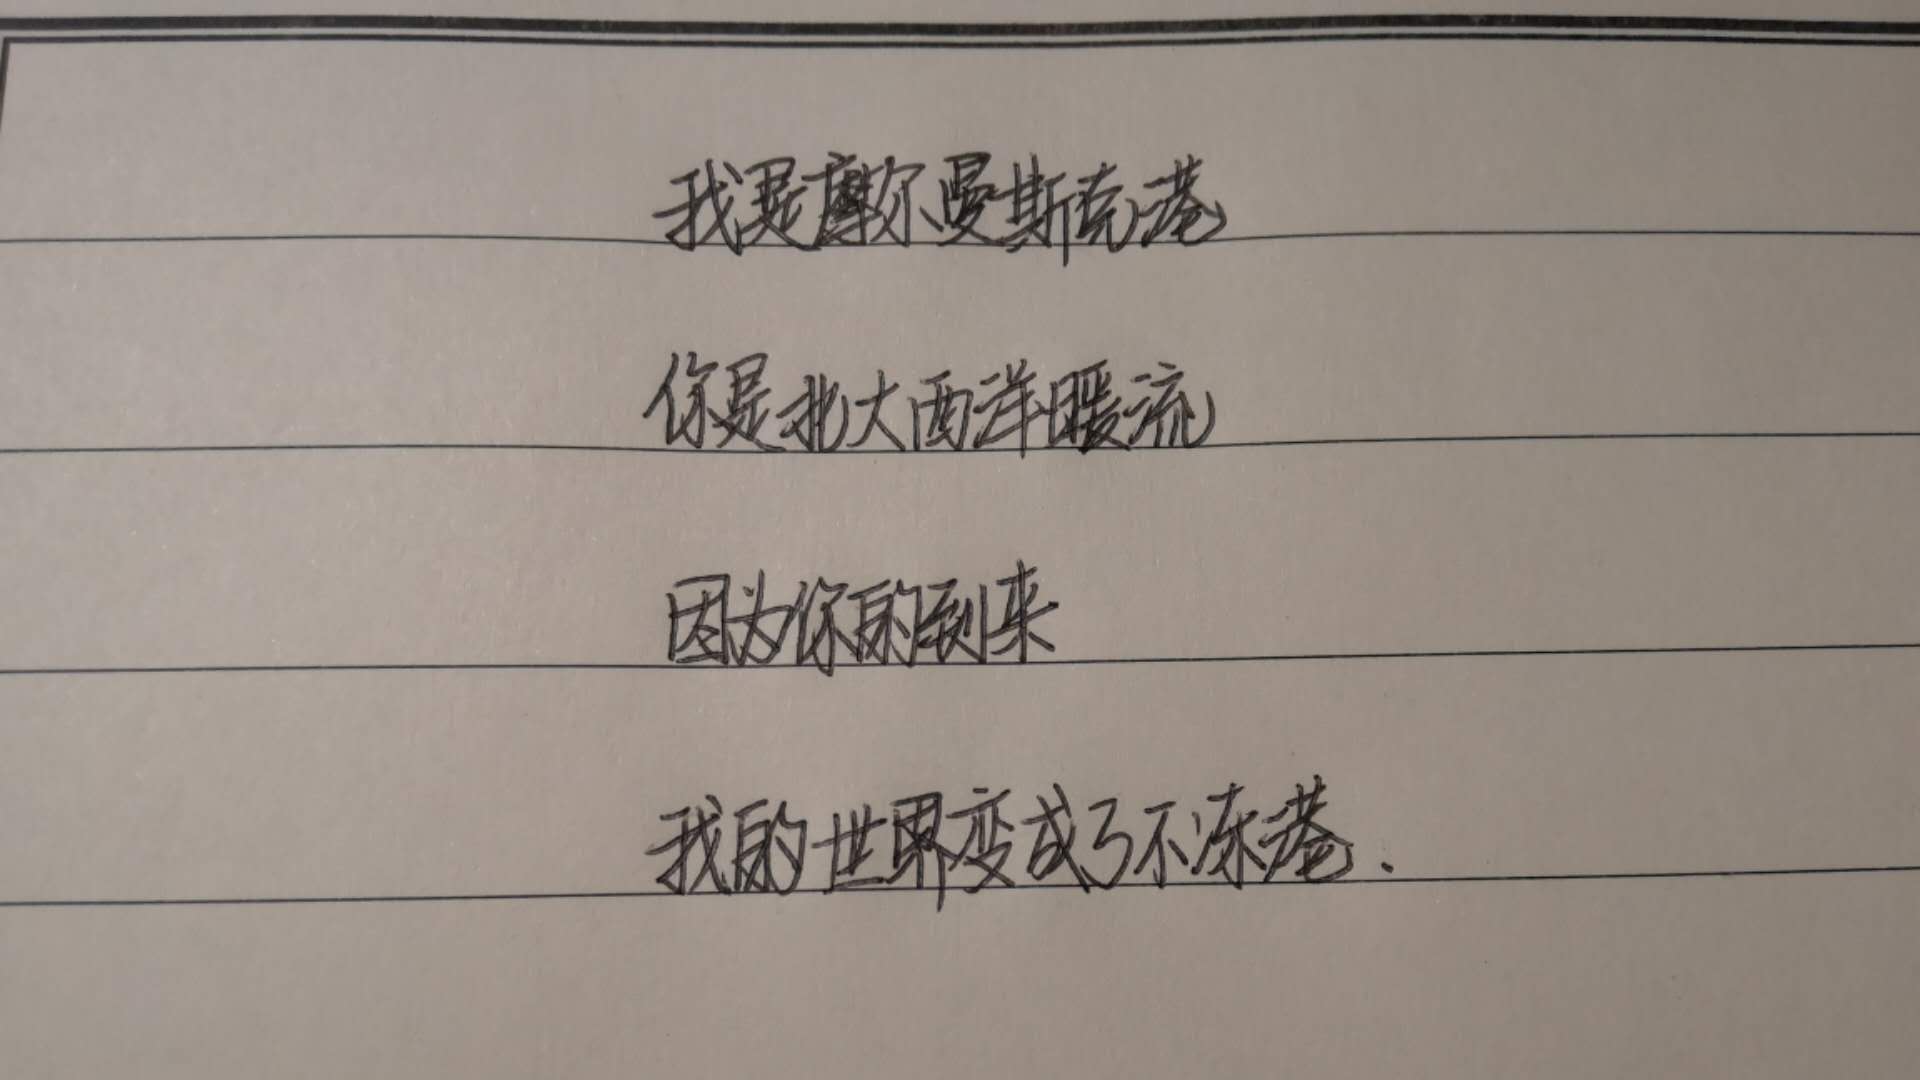 我是摩尔曼斯克港
你是北大西洋暖流
因为你的到来
我的世界变成了不冻港.